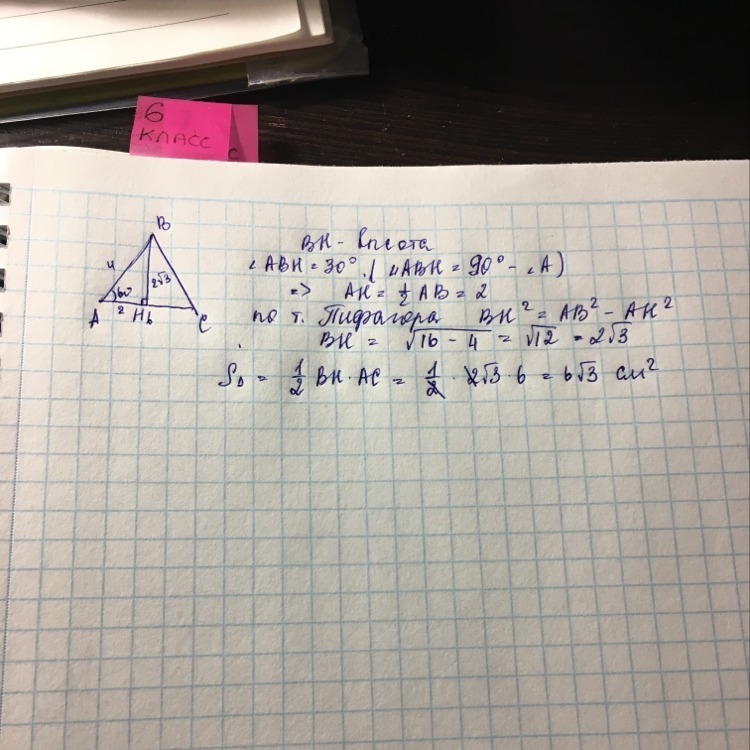 6
КЛАСС
с
B
4
60°
2√3
A
2
H
6
C
BH - высота
∠ABH = 30° (∠ABH = 90° - ∠A)
=> AH = 1/2 AB = 2
по т. Пифагора BH² = AB² - AH²
BH = √16 - 4 = √12 = 2√3
S△ = 1/2 BH · AC = 1/2 · 2√3 · 6 = 6√3 см²